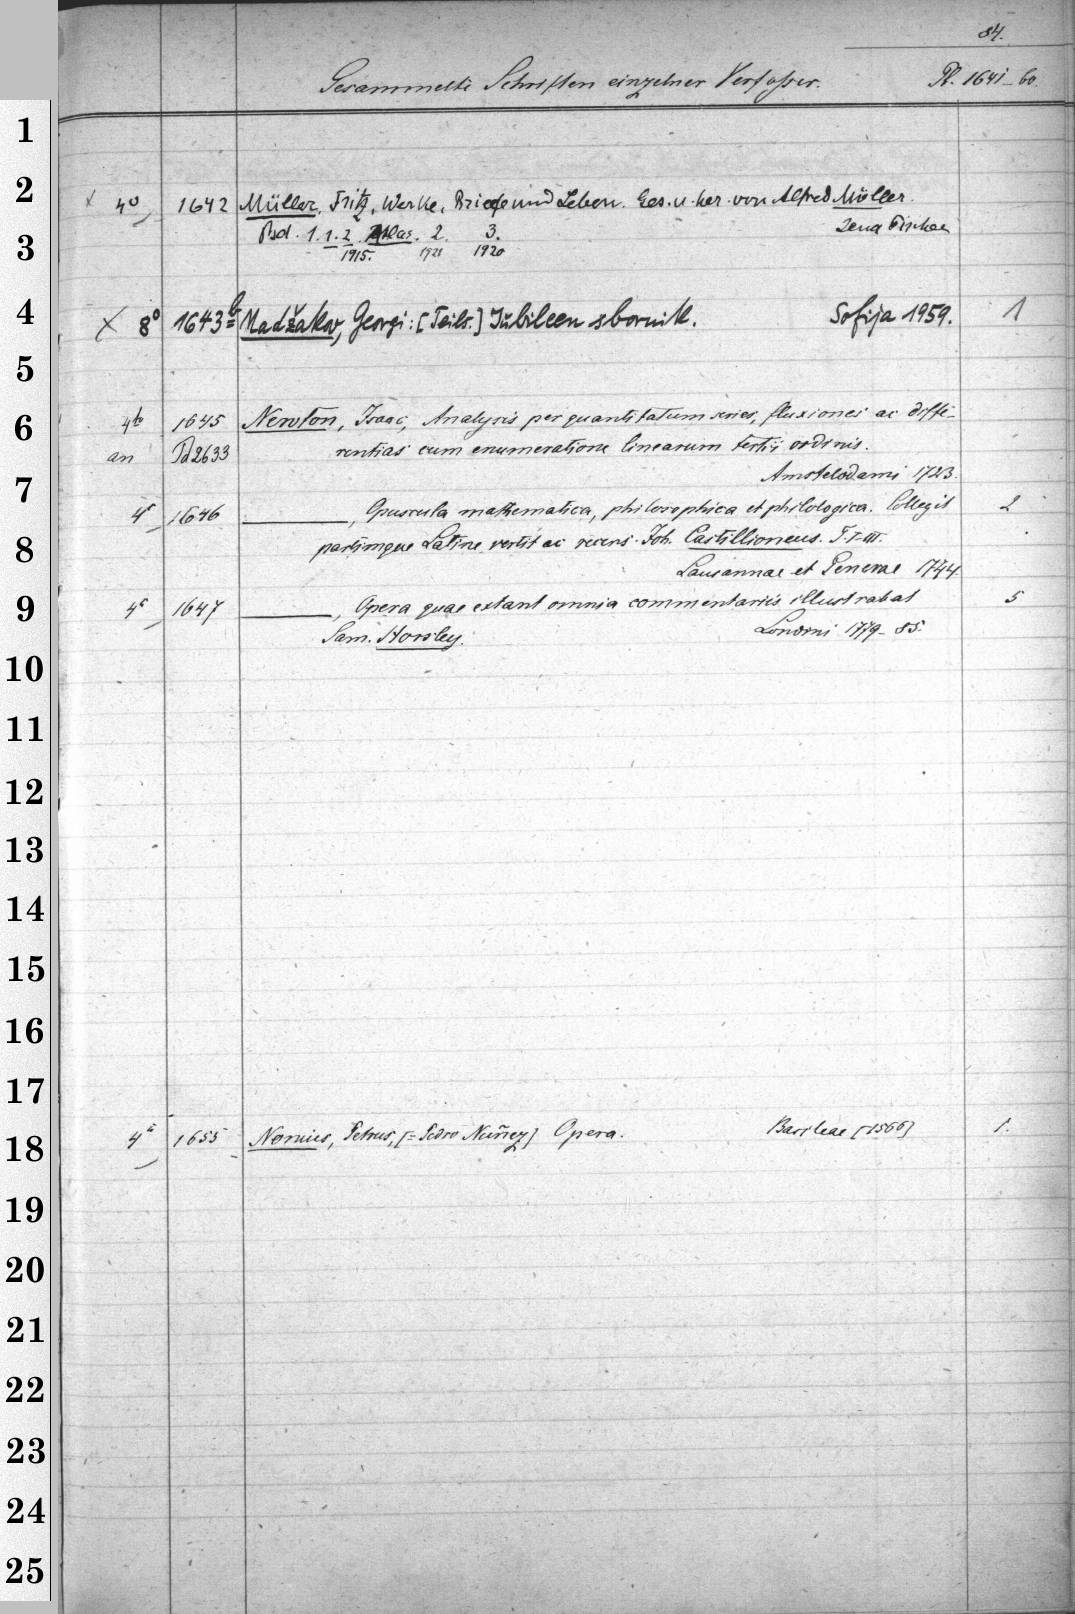 84.
Gesammelte Schriften einzelner Verfasser. Pl. 1641-60.
1
2
x 4° 1642 Müller, Fritz, Werke, Briefe und Leben. Ges. u. her. von Alfred Möller.
Bd. 1. 1. 2. Atlas. 2. 3. Jena Fischer
3
1915. 1921 1920
4
X 8° 1643 b Nadžakov, Georgi: [Teils.] Jubileen sbornik. Sofija 1959. 1
5
6
4to 1645 Newton, Isaac, Analysis per quantitatum series, fluxiones ac diffe-
an Pd 2633 rentias cum enumeratione linearum tertii ordinis.
Amstelodami 1723.
7
4° 1646 ———, Opuscula mathematica, philosophica et philologica. Collegit 2
8
partimque Latine vertit ac recens. Joh. Castillioneus. T. I-III.
Lausannae et Genevae 1744.
9
4° 1647 ———, Opera quae extant omnia commentariis illustrabat 5
Sam. Horsley. Londini 1779-85.
10
11
12
13
14
15
16
17
18
4° 1655 Nonius, Petrus, [= Pedro Nuñez] Opera. Basileae [1566] 1.
19
20
21
22
23
24
25